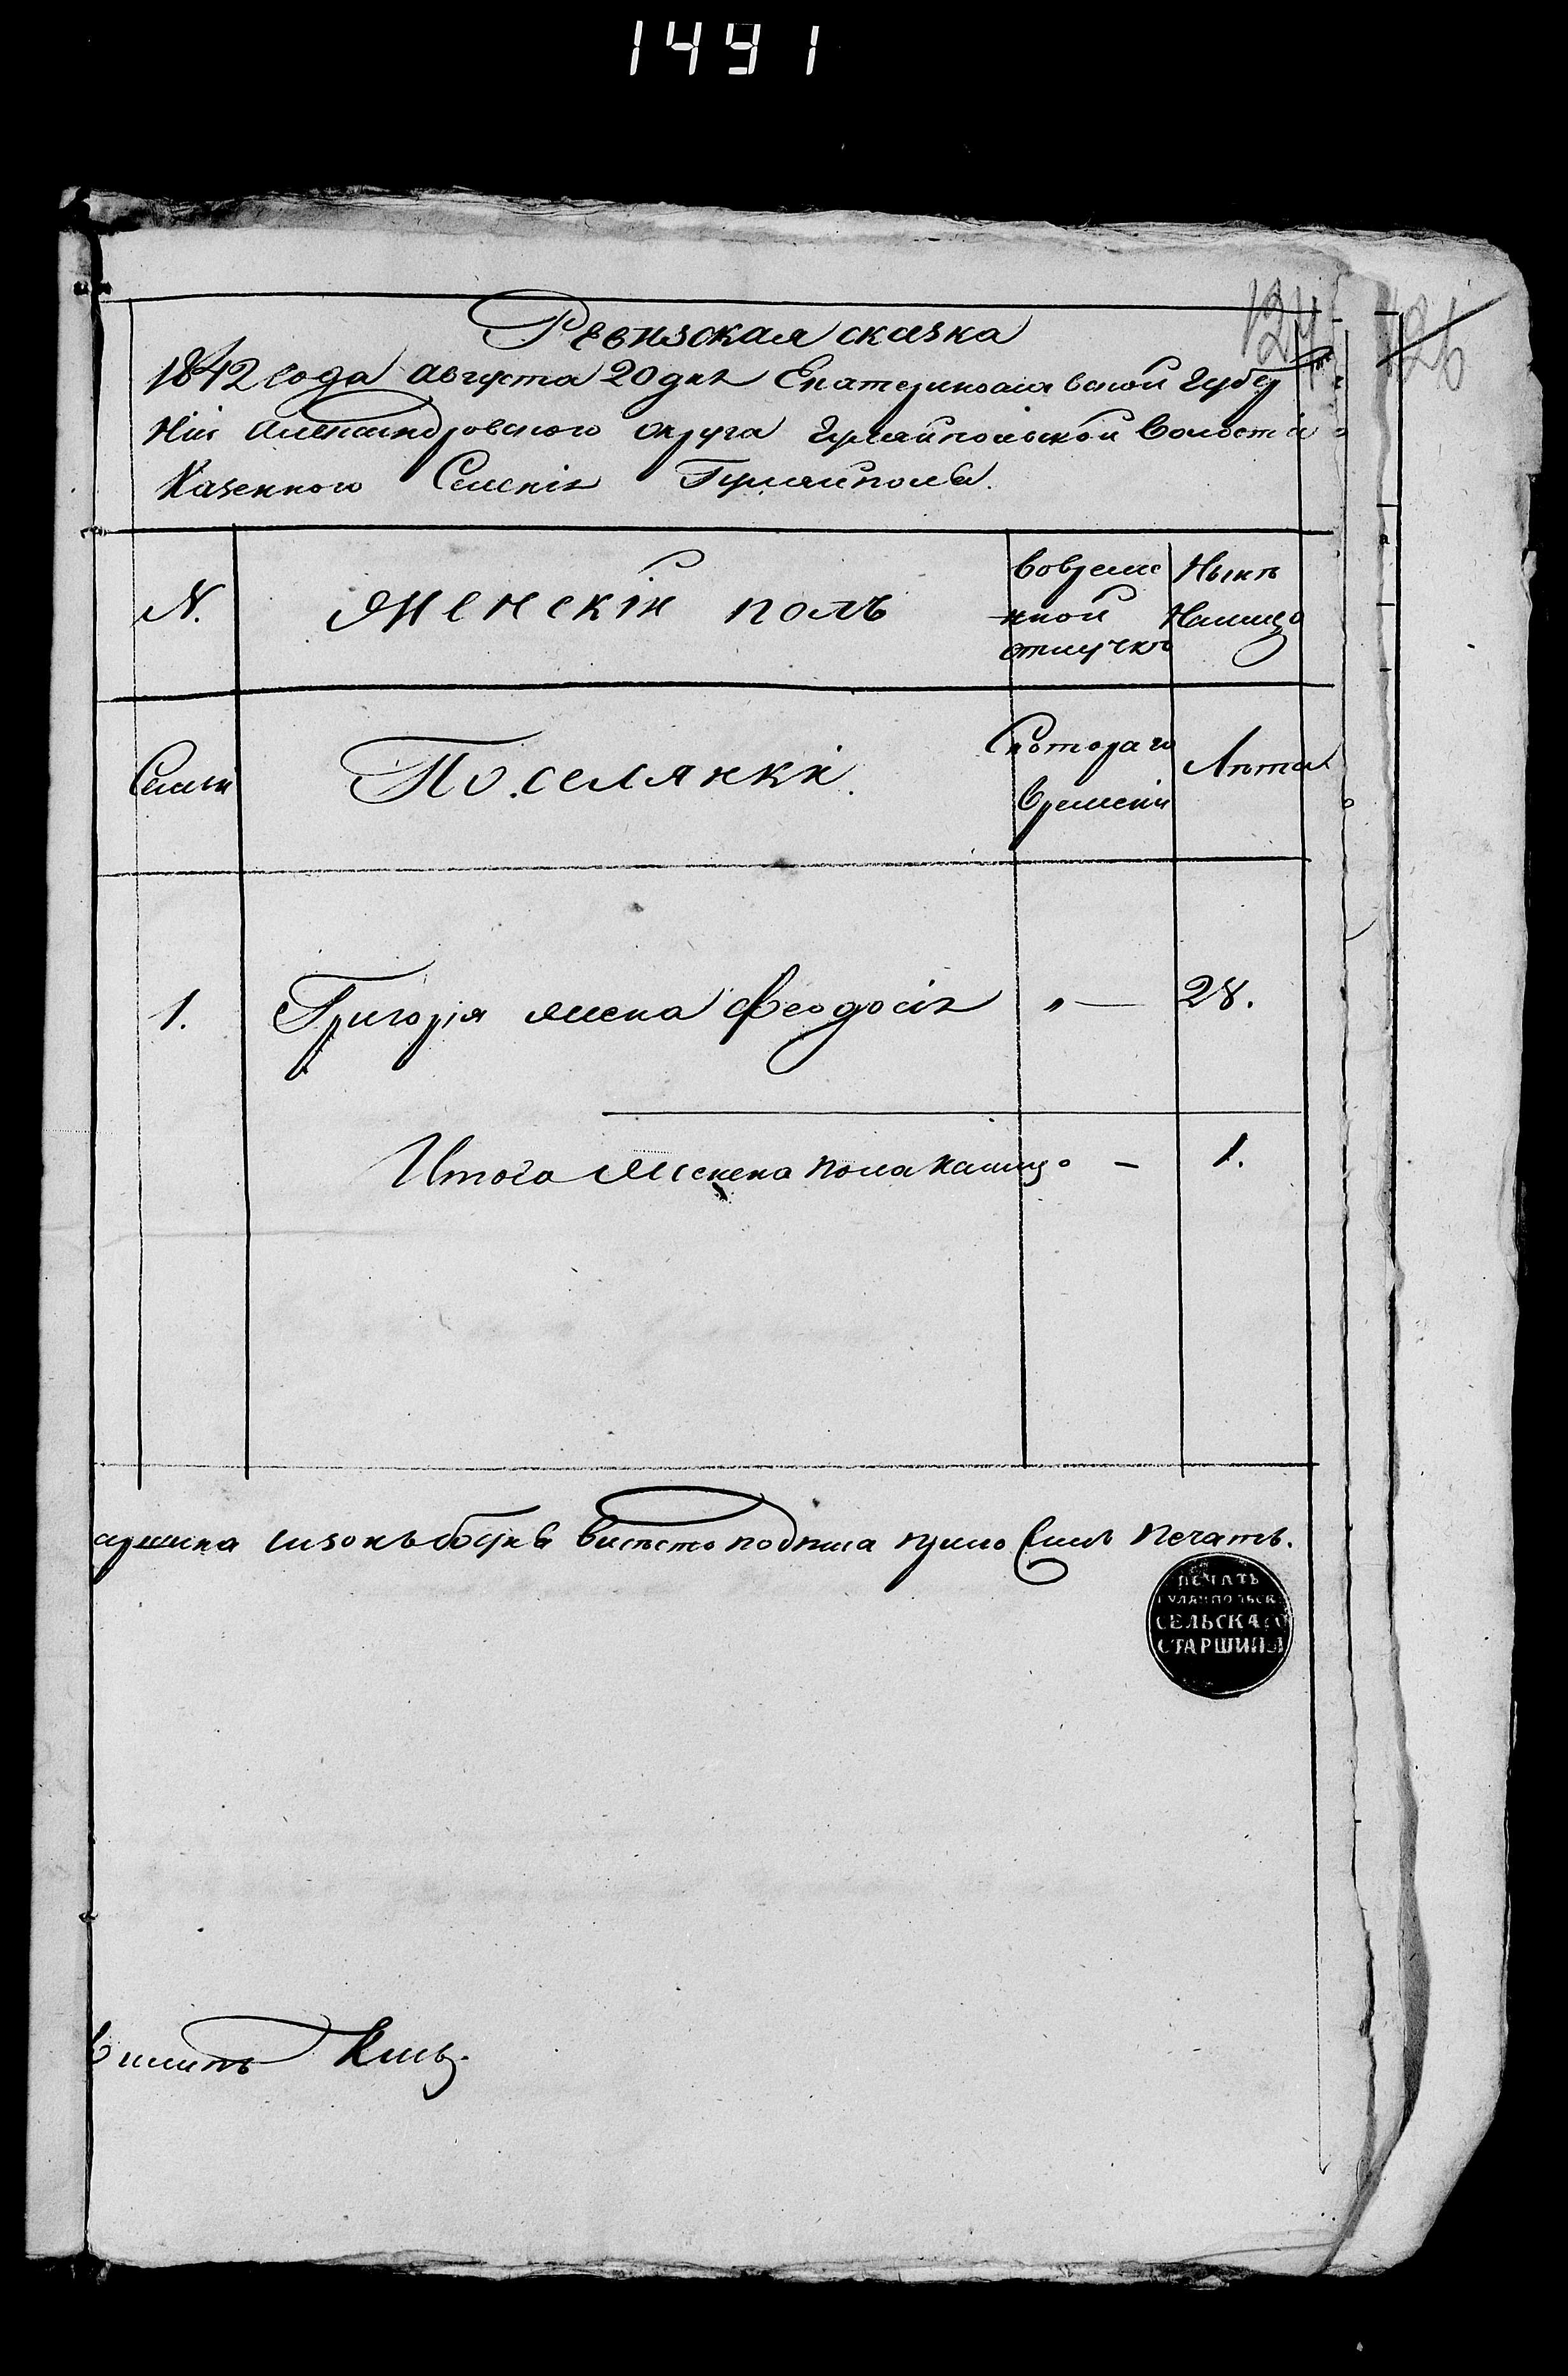 1491
124
126
Ревизская сказка
1842 года августа 20 дня Екатеринославской Губер
ніи Александровского округа Гуляйпольской Волости
Казенного Селенія Гуляйполя.
N. Женскій полъ вовреме Нынѣ
нной Налицо
отлучкѣ
Семьи Поселянки. Скотораго Лѣта
времени
1. Григорія жена Феодосія „ — 28.
Итого женска пола налицо — 1.
аршина вмѣсто подписа прило Силъ Печать.
ПЕЧАТЬ
ГУЛЯЙПОЛЬСК
СЕЛЬСКАГО
СТАРШИНЫ